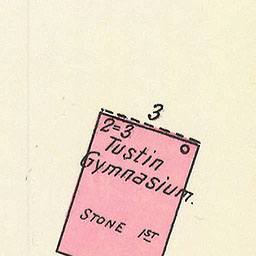 3
2=3
Tustin
Gymnasium.
STONE 1ST